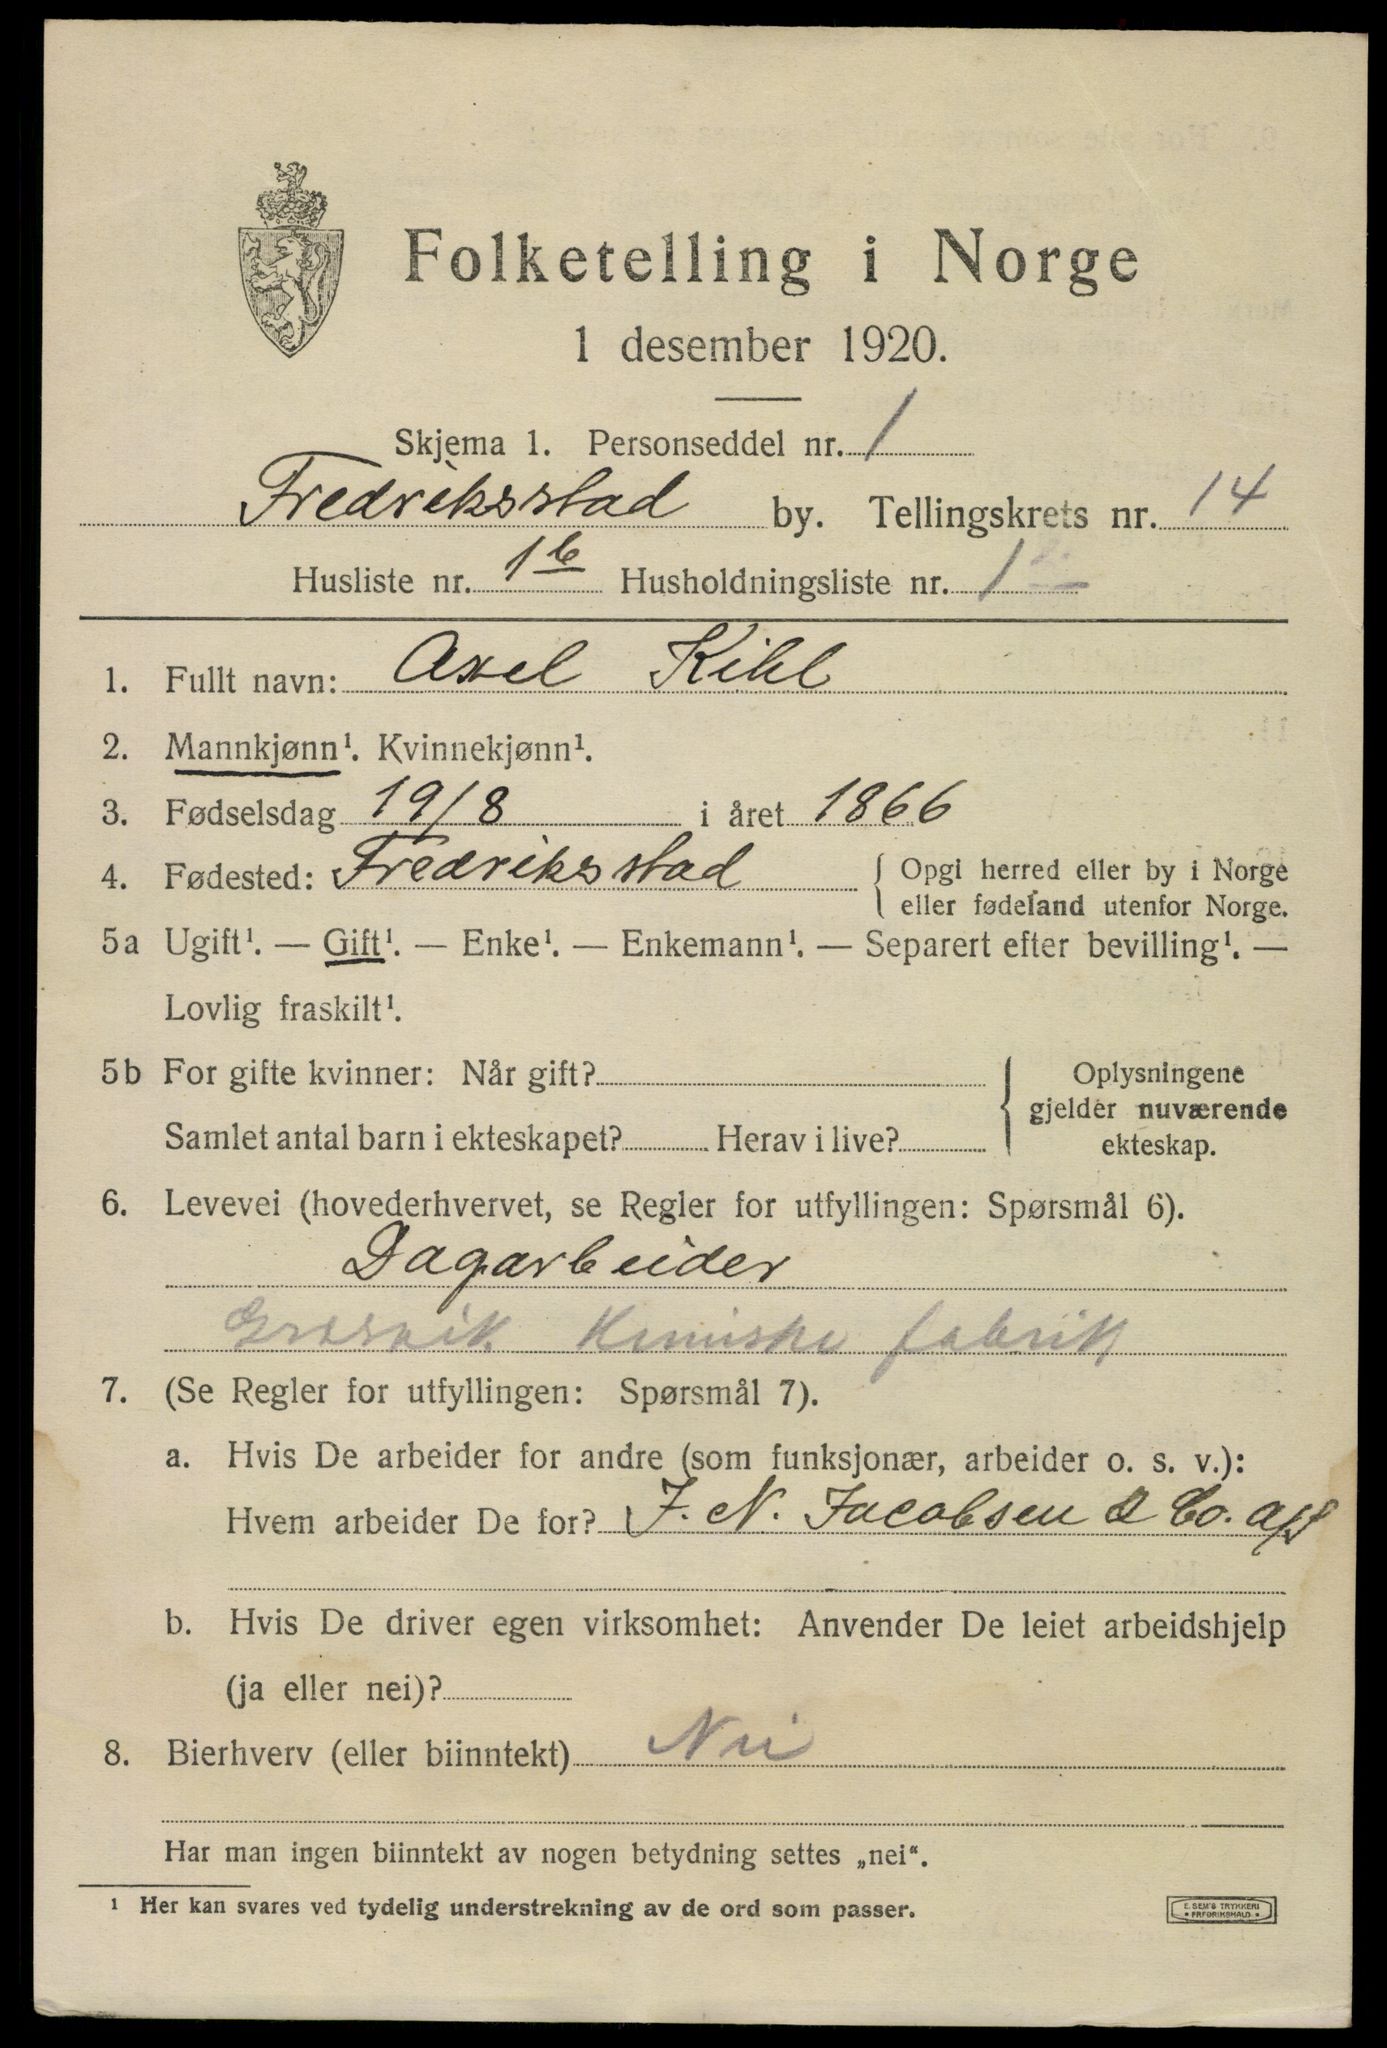 Folketelling i Norge
1 desember 1920.
Skjema 1. Personseddel nr. 1
Fredriksstad by. Tellingskrets nr. 14
Husliste nr. 1b Husholdningsliste nr. 1
1. Fullt navn: Axel Kihl
2. Mannkjønn¹. Kvinnekjønn¹.
3. Fødselsdag 19/8 i året 1866
4. Fødested: Fredriksstad { Opgi herred eller by i Norge
eller fødeland utenfor Norge.
5a Ugift¹. — Gift¹. — Enke¹. — Enkemann¹. — Separert efter bevilling¹. —
Lovlig fraskilt¹.
5b For gifte kvinner: Når gift? { Oplysningene
gjelder nuværende
Samlet antal barn i ekteskapet? Herav i live? ekteskap.
6. Levevei (hovederhvervet, se Regler for utfyllingen: Spørsmål 6).
Dagarbeider
Gresvik Kemiske fabrik
7. (Se Regler for utfyllingen: Spørsmål 7).
a. Hvis De arbeider for andre (som funksjonær, arbeider o. s. v.):
Hvem arbeider De for? J. N. Jacobsen & Co. A/S
b. Hvis De driver egen virksomhet: Anvender De leiet arbeidshjelp
(ja eller nei)?
8. Bierhverv (eller biinntekt) Nei
Har man ingen biinntekt av nogen betydning settes „nei“.
¹ Her kan svares ved tydelig understrekning av de ord som passer.
E. SEM'S TRYKKERI
• FREDRIKSHALD •